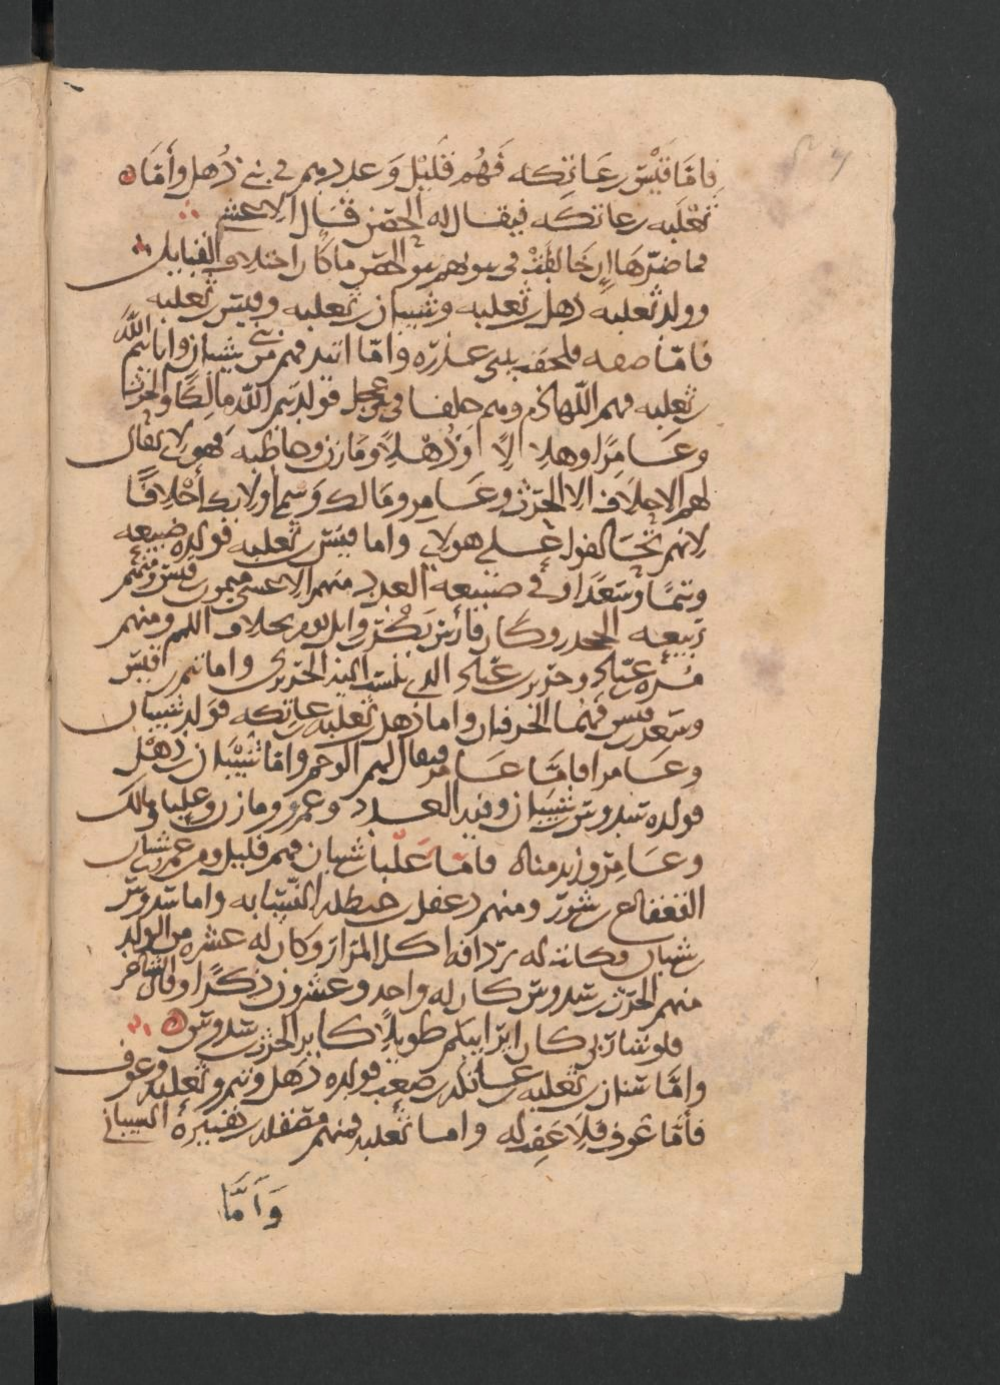 فامّا قيس بن عاتكه فَهُم قَليْل وَعدد هم في بني ذُهل وأمَّا
ثعلبه بن عاتكه فيقال له الحصْن قال الاعشى
فما ضرّها إن خالفَتْ في بيوتهم بنو الحصن ما كان اختلاف القبايل
وولد ثعلبه ذهل بن ثعلبه وشيبان بن ثعلبه وقيس بن ثعلبه
فامّا ضنه فلحقت ببني عذره وامّا اتيد فهم من بني شيبان واما تيم الله
بن ثعلبه فهم اللهازم وهم حلفا في بني عجل فولد تيم الله مالكًا والحرث
وعامرًا وهلالًا وذُهْلًا ومازن وحاطبه فهولاي يقال
لهم الاحلاف الا الحرث وعامر ومالك وسموا ولايك أحْلافًا
لانهم تحالفوا على هولاي واما قيس بن ثعلبه فولده ضبيعه
وتيمًا وسَعْدا وفي ضبيعه العدد منهم الاعشى ميمون بن قيس ومنهم
ربيعه الجحدر وكان فارس بكر بن وايل يوم تحلاق اللمم ومنهم
مُره بن عبّاد وجرير بن عبّاد الذي نسبت اليه الجريري واما تيم بن قيس
وسعد بن قيس فهما الخرفتان واما ذهل بن ثعلبه بن عاتكه فولد شيبان
وعامرا فامّا عامر فيقال لهم الوخم وامّا شيبان بن ذهل
فولده سدوس بن شيبان وفيه العدد وعمرو ومازن وعليا ومالك
وعامر وزيد مناة فامّا عَلْبا بن شيبان فهم قليل ومن عمرو بن شيبان
القعقاع بن شور ومنهم دغفل بن حنظله النسّابه واما سدوس
بن شيبان فكانت له ردافه اكل المرار وكان له عشره من الولد
منهم الحرث بن سدوس كان له واحد وعشرون ذَكَرًا وقال الشاعر
فلو شا ربّي كان اير ابيكم طويلًا كاير الحرث بن سدوس
وامّا شيبان بن ثعلبه بن عكابه بن صعب فولده ذهل وتيم وثعلبه وعوف
فأمّا عَوف فلا عَقِب له واما ثعلبه فمنهم مصقله بن هُبيرة الشيباني
وَأَمَّا